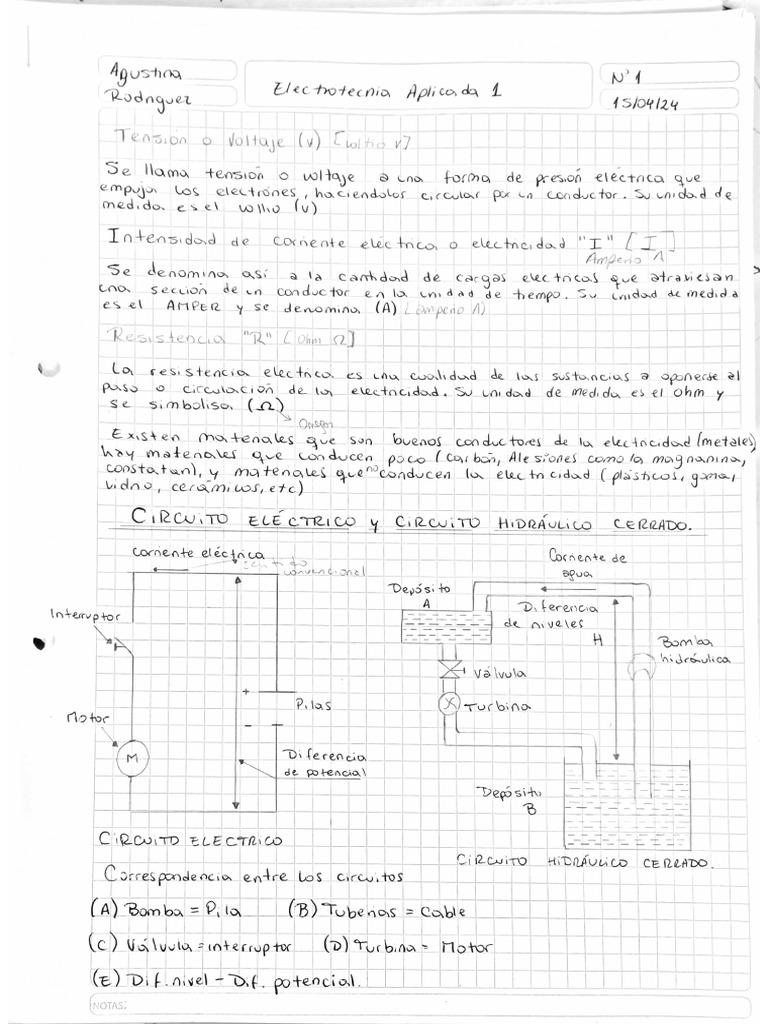 Agustina
Rodriguez
Electrotecnia Aplicada 1
N°1
15/04/24
Tensión o Voltaje (v) [voltio v]
Se llama tensión o voltaje a una forma de presión eléctrica que
empuja los electrones, haciendolos circular por un conductor. Su unidad de
medida es el voltio (v)
Intensidad de corriente eléctrica o electricidad "I" [I]
Amperio A
Se denomina así a la cantidad de cargas electricas que atraviesan
una sección de un conductor en la unidad de tiempo. Su unidad de medida
es el AMPER y se denomina (A) (amperio A)
Resistencia "R" [Ohm Ω]
La resistencia electrica es una cualidad de las sustancias a oponerse al
paso o circulación de la electricidad. Su unidad de medida es el ohm y
se simbolisa (Ω)
Existen materiales que son buenos conductores de la electricidad (metales)
hay materiales que conducen poco (carbón, Alesiones como la magnanina,
constatan), y materiales que no conducen la electricidad (plásticos, goma,
vidrio, cerámicos, etc)
CIRCUITO ELÉCTRICO y CIRCUITO HIDRÁULICO CERRADO.
corriente eléctrica
sentido
convencional
Interruptor
Motor
M
+
-
Pilas
Diferencia
de potencial
CIRCUITO ELECTRICO
Corriente de
agua
Depósito
A
Diferencia
de niveles
H
Bomba
hidráulica
Válvula
Turbina
Depósito
B
CIRCUITO HIDRÁULICO CERRADO.
Correspondencia entre los circuitos
(A) Bomba = Pila (B) Tuberias = Cable
(C) Válvula = interruptor (D) Turbina = Motor
(E) Dif. nivel - Dif. potencial.
NOTAS: